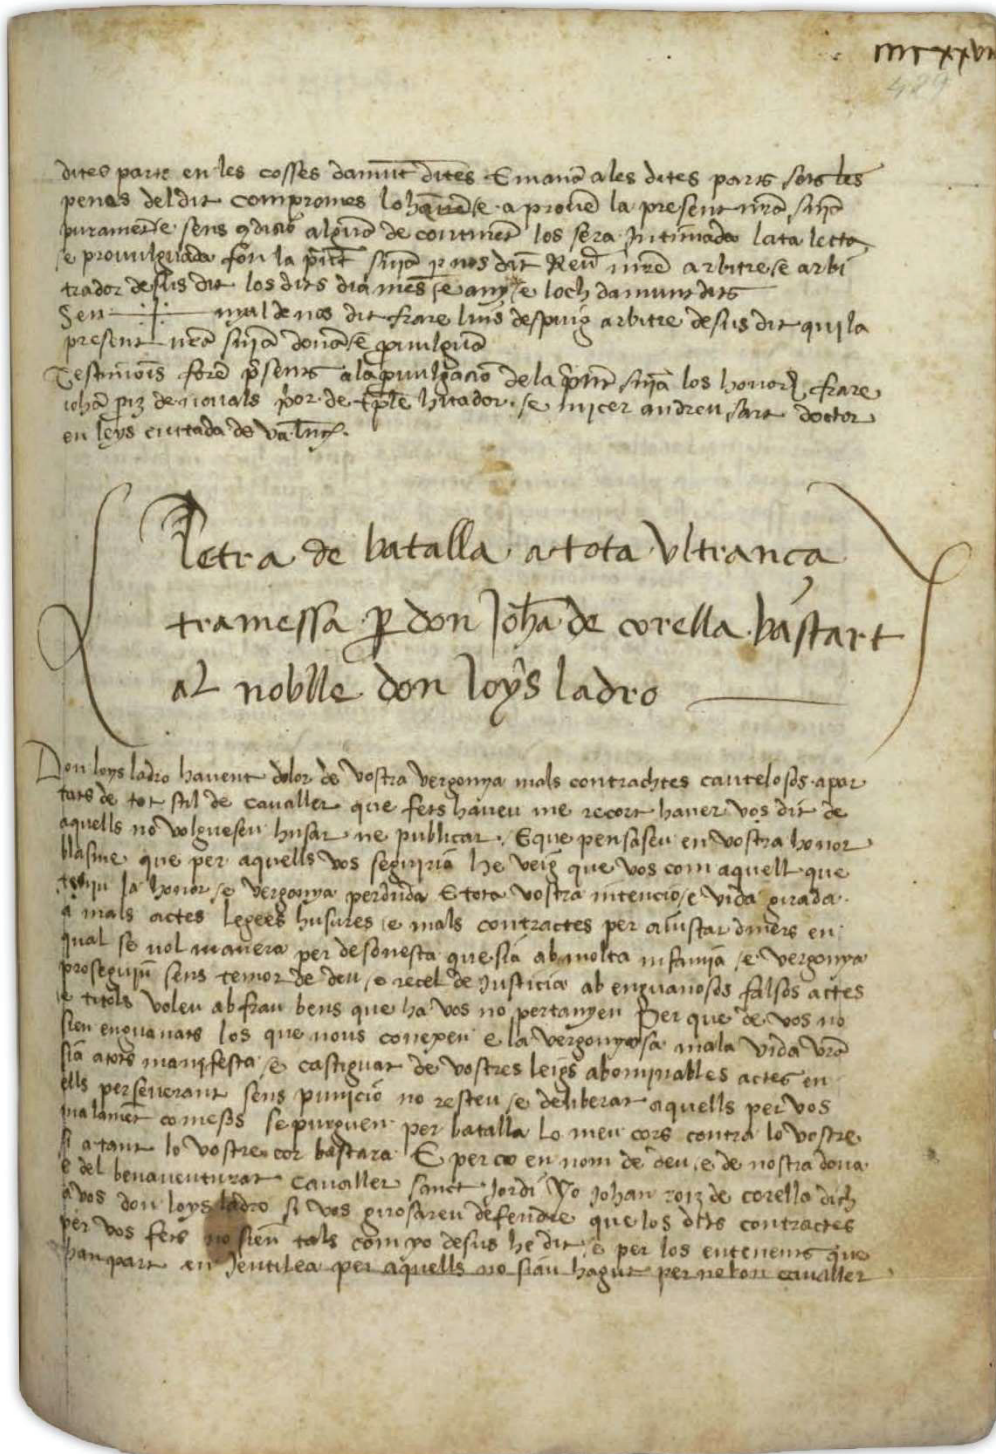 mcxxvii
429
dites parts en les cosses damunt dites E mana a les dites parts sots les
penas del dit compromes lohen e e aproven la present nrā sñia
purament e sens ꝯdicio alguna de continent los sera Intimada lata lecta
e promulguada fon la pñt sñia ꝑ nos dit Reuᵗ mre arbitre e arbi
trador desus dit los dits dia mes e any e loch damunt dits
Sen nyal de nos dit frare luis despuig arbitre desus dit qui la
present nrā sñia donam e ꝓmulguā
Testimonis foren p̃sents a la ꝓmulgacio de la p̃nt sñia los honorꝫ frare
iohā ꝑiz de nouals ꝑor de tꝑle hitador e micer andreu sart doctor
en leys ciutada de vałn
Letra de batalla a tota vltrança
tramessa ꝑ don Johā de corella bastart
al noblle don loys ladro
Don loys ladro hauent dolor de vostra vergonya mals contrachtes cautelosos apar
tats de tot stil de caualler que fets haueu me recort hauer vos dit de
aquells no volgueseu husar ne publicar. E que pensaseu en vostra honor
blasme que per aquells vos seguiria he veig que vos com aquell que
teniu la honor e vergonya perduda E tota vostra intencio e vida girada
a mals actes legees husures e mals contractes per aiustar diners en
qual se uol manera per desonesta que sia ab molta infamia e vergonya
proseguiu sens temor de deu e recel de Justicia ab enguanosos falsos actes
e titols voleu ab frau bens que ha vos no pertanyen Per que de vos no
sien enguanats los que nous conexen e la vergonyosa mala vida vrā
sia a tots manifesta e castiguat de vostres leigs abominables actes en
ells perseuerant sens punicio no resteu e deliberat aquells per vos
malament comesos se purguen per batalla lo meu cors contra lo vostre
si a tant lo vostre cor bastara E per ço en nom de deu e de nostra dona
e del benauenturat caualler sanct Jordi Yo Johan roiz de corella dich
a vos don loys ladro si vos girosareu defendre que los dits contractes
per vos fets no sien tals com yo desus he dit e per los entenents que
han part en Jentilea per aquells no siau hagut per ne bon caualler